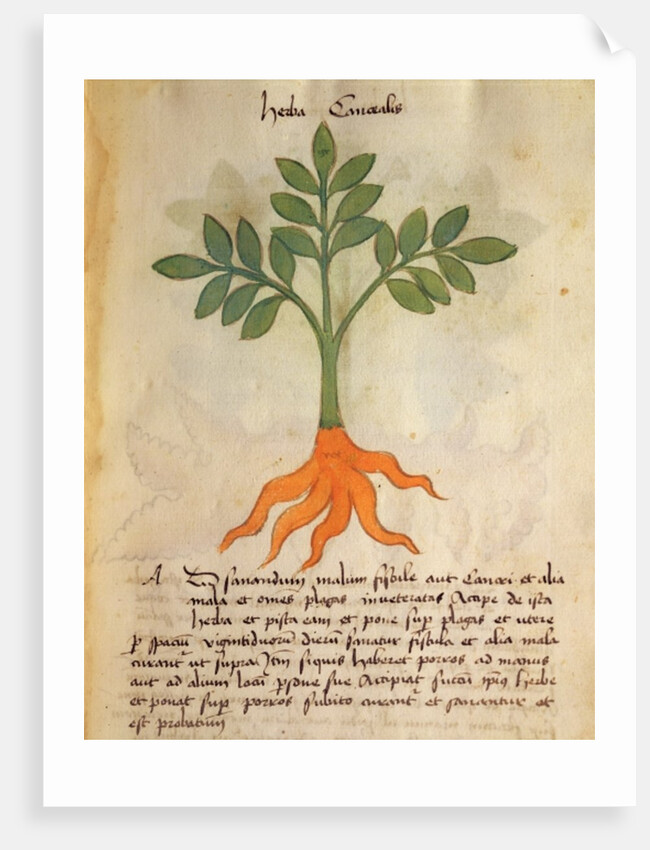 Herba Cancralis
A D sanandum malum fistule aut Cancri et alia
mala et omēs plagas inveteratas Accipe de ista
herba et pista eam et pone sup plagas et utere
p spaciū vigintiduorū dierū sanatur fistula et alia mala
curant ut supra Itm siquis haberet porros ad manus
aut ad alium locū psone sue Accipiat sucū ipius herbe
et ponat sup porros subito curant et sanantur et
est probatum